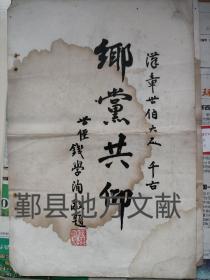 漢章世伯大人千古
鄉黨共仰
世侄錢學洵敬題
鄞县地方文献